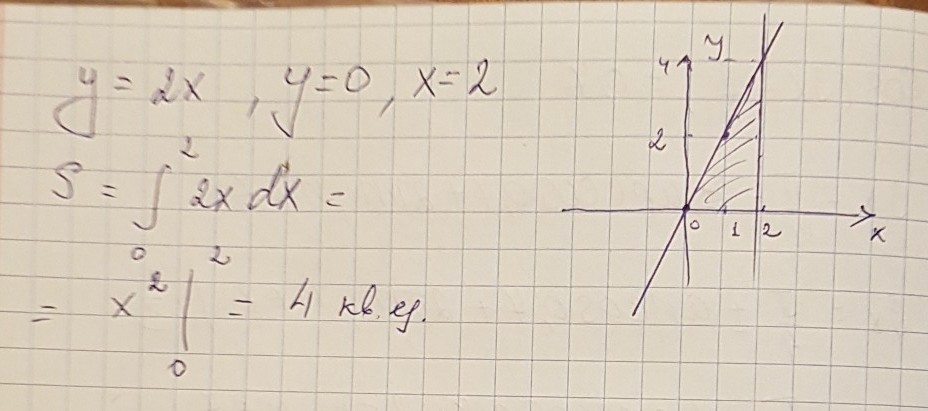 y = 2x , y=0, x=2
S = ∫₀² 2x dx =
= x² |₀² = 4 кв. ед.
y
4
2
0 1 2
x